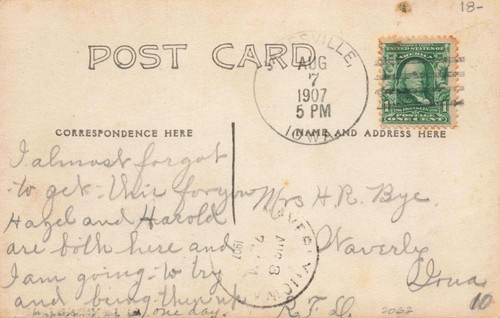 18-
POST CARD
SVILLE,
AUG
7
1907
5 PM
IOWA
UNITED STATES OF AMERICA
POSTAGE
ONE CENT
CORRESPONDENCE HERE
NAME AND ADDRESS HERE
I almost forgot
to get this for you
Hazel and Harold
are both here and
I am going to try
and bring them up
one day.
Mrs H. R. Bye.
Waverly
Iowa
R. F. D.
10
AUG 8
1907
2022